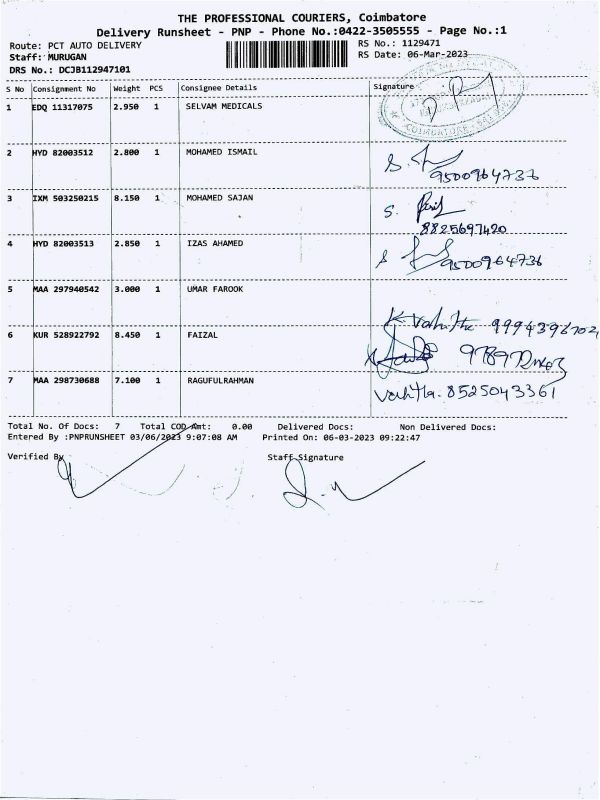 THE PROFESSIONAL COURIERS, Coimbatore
Delivery Runsheet - PNP - Phone No.:0422-3505555 - Page No.:1
Route: PCT AUTO DELIVERY
RS No.: 1129471
Staff: MURUGAN
RS Date: 06-Mar-2023
DRS No.: DCJB112947101
S No Consignment No Weight PCS Consignee Details Signature
1 EDQ 11317075 2.950 1 SELVAM MEDICALS
COIMBATORE
2 HYD 82003512 2.800 1 MOHAMED ISMAIL
9500964736
3 IXM 503250215 8.150 1 MOHAMED SAJAN
8825697420
4 HYD 82003513 2.850 1 IZAS AHAMED
9500964736
5 MAA 297940542 3.000 1 UMAR FAROOK
K. Vahitha
6 KUR 528922792 8.450 1 FAIZAL
7 MAA 298730688 7.100 1 RAGUFULRAHMAN
Vahitha. 8525043361
Total No. Of Docs: 7 Total COD Amt: 0.00 Delivered Docs: Non Delivered Docs:
Entered By :PNPRUNSHEET 03/06/2023 9:07:08 AM Printed On: 06-03-2023 09:22:47
Verified By Staff Signature